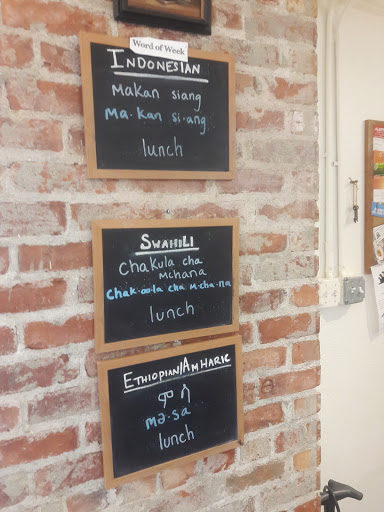 Word of Week
INDONESIAN
Makan siang
Ma-kan si-ang
lunch
SWAHILI
Chakula cha
mchana
Chak-oo-la cha m-cha-na
lunch
ETHIOPIAN/AMHARIC
ም ሳ
mə-sa
lunch